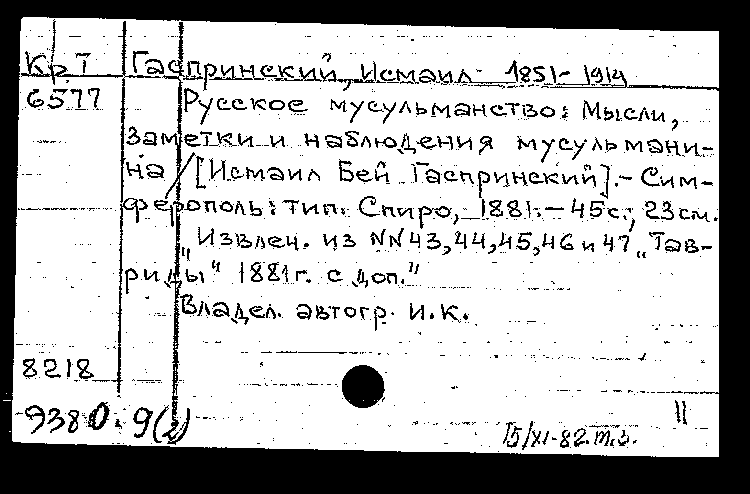 Кр. Т Гаспринский, Исмаил 1851-1914
6577 Русское мусульманство: Мысли,
заметки и наблюдения мусульмани-
на / [Исмаил Бей Гаспринский].- Сим-
ферополь: тип. Спиро, 1881.- 45с.; 23см.
"Извлеч. из NN43,44,45,46 и 47 „Тав-
риды" 1881г. с доп."
Владел. автогр. И.К.
8218
9380. 9(2)
15/XI-82.т.з.
II